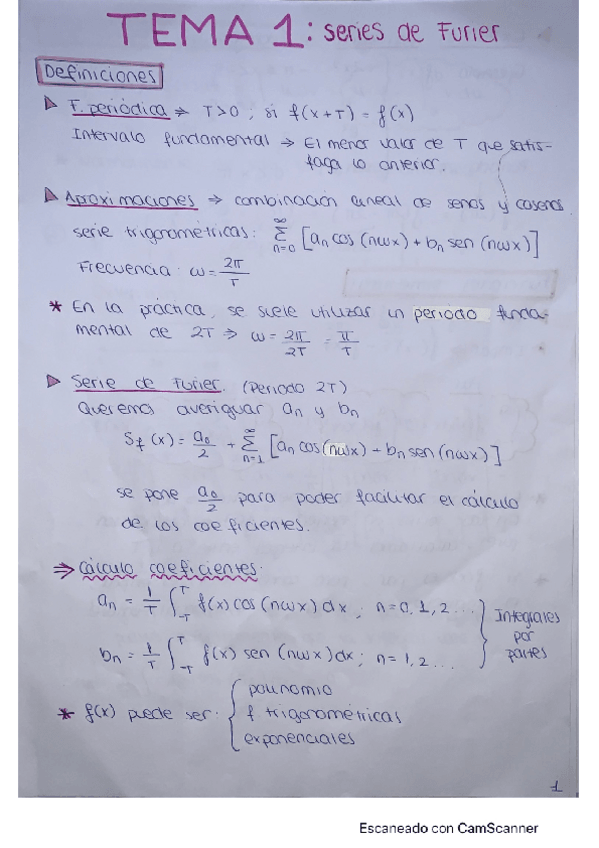 TEMA 1: series de Furier
Definiciones
▷ F. periódica → T>0 ; si f(x+T) = f(x)
Intervalo fundamental → El menor valor de T que satis-
faga lo anterior.
▷ Aproximaciones → combinación lineal de senos y cosenos.
serie trigonométricas: ∑_{n=0}^{∞} [an cos (nωx) + bn sen (nωx)]
Frecuencia: ω = 2π/T
* En la práctica, se suele utilizar un periodo funda-
mental de 2T ⇒ ω = 2π/2T = π/T
▷ Serie de Furier. (Periodo 2T)
Queremos averiguar an y bn
Sf (x) = a0/2 + ∑_{n=1}^{∞} [an cos(nωx) + bn sen(nωx)]
se pone a0/2 para poder facilitar el cálculo
de los coeficientes.
⇒ Cálculo coeficientes.
an = 1/T ∫_{-T}^{T} f(x) cos (nωx) dx ; n=0,1,2...
bn = 1/T ∫_{-T}^{T} f(x) sen (nωx) dx ; n=1,2...
Integrales
por
partes
* f(x) puede ser: { polinomio
f trigonométricas
exponenciales
1
Escaneado con CamScanner